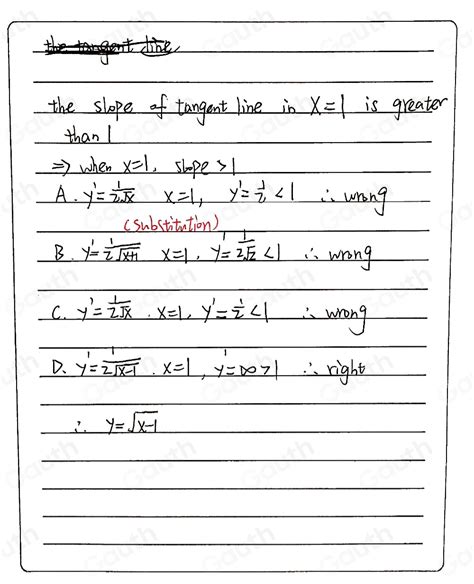 the tangent line
the slope of tangent line in X=1 is greater
than 1
⇒ when x=1, slope >1
A. y'=1/2√x x=1, y'=1/2 <1 ∴ wrong
(substitution)
B. y'=1/2√x+1 x=1, y'=1/2√2 <1 ∴ wrong
C. y'=1/2√x . x=1, y'=1/2 <1 ∴ wrong
D. y'=1/2√x-1 . x=1, y'=∞>1 ∴ right
∴ y=√x-1